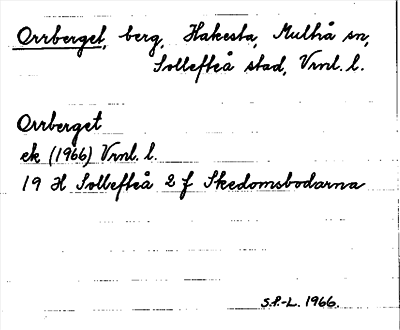 Orrberget, berg, Hakesta, Multrå sn,
Sollefteå stad, Vrnl. l.
Orrberget
ek (1966) Vrnl. l.
19 H Sollefteå 2 f Skedomsbodarna
S.P.-L. 1966.